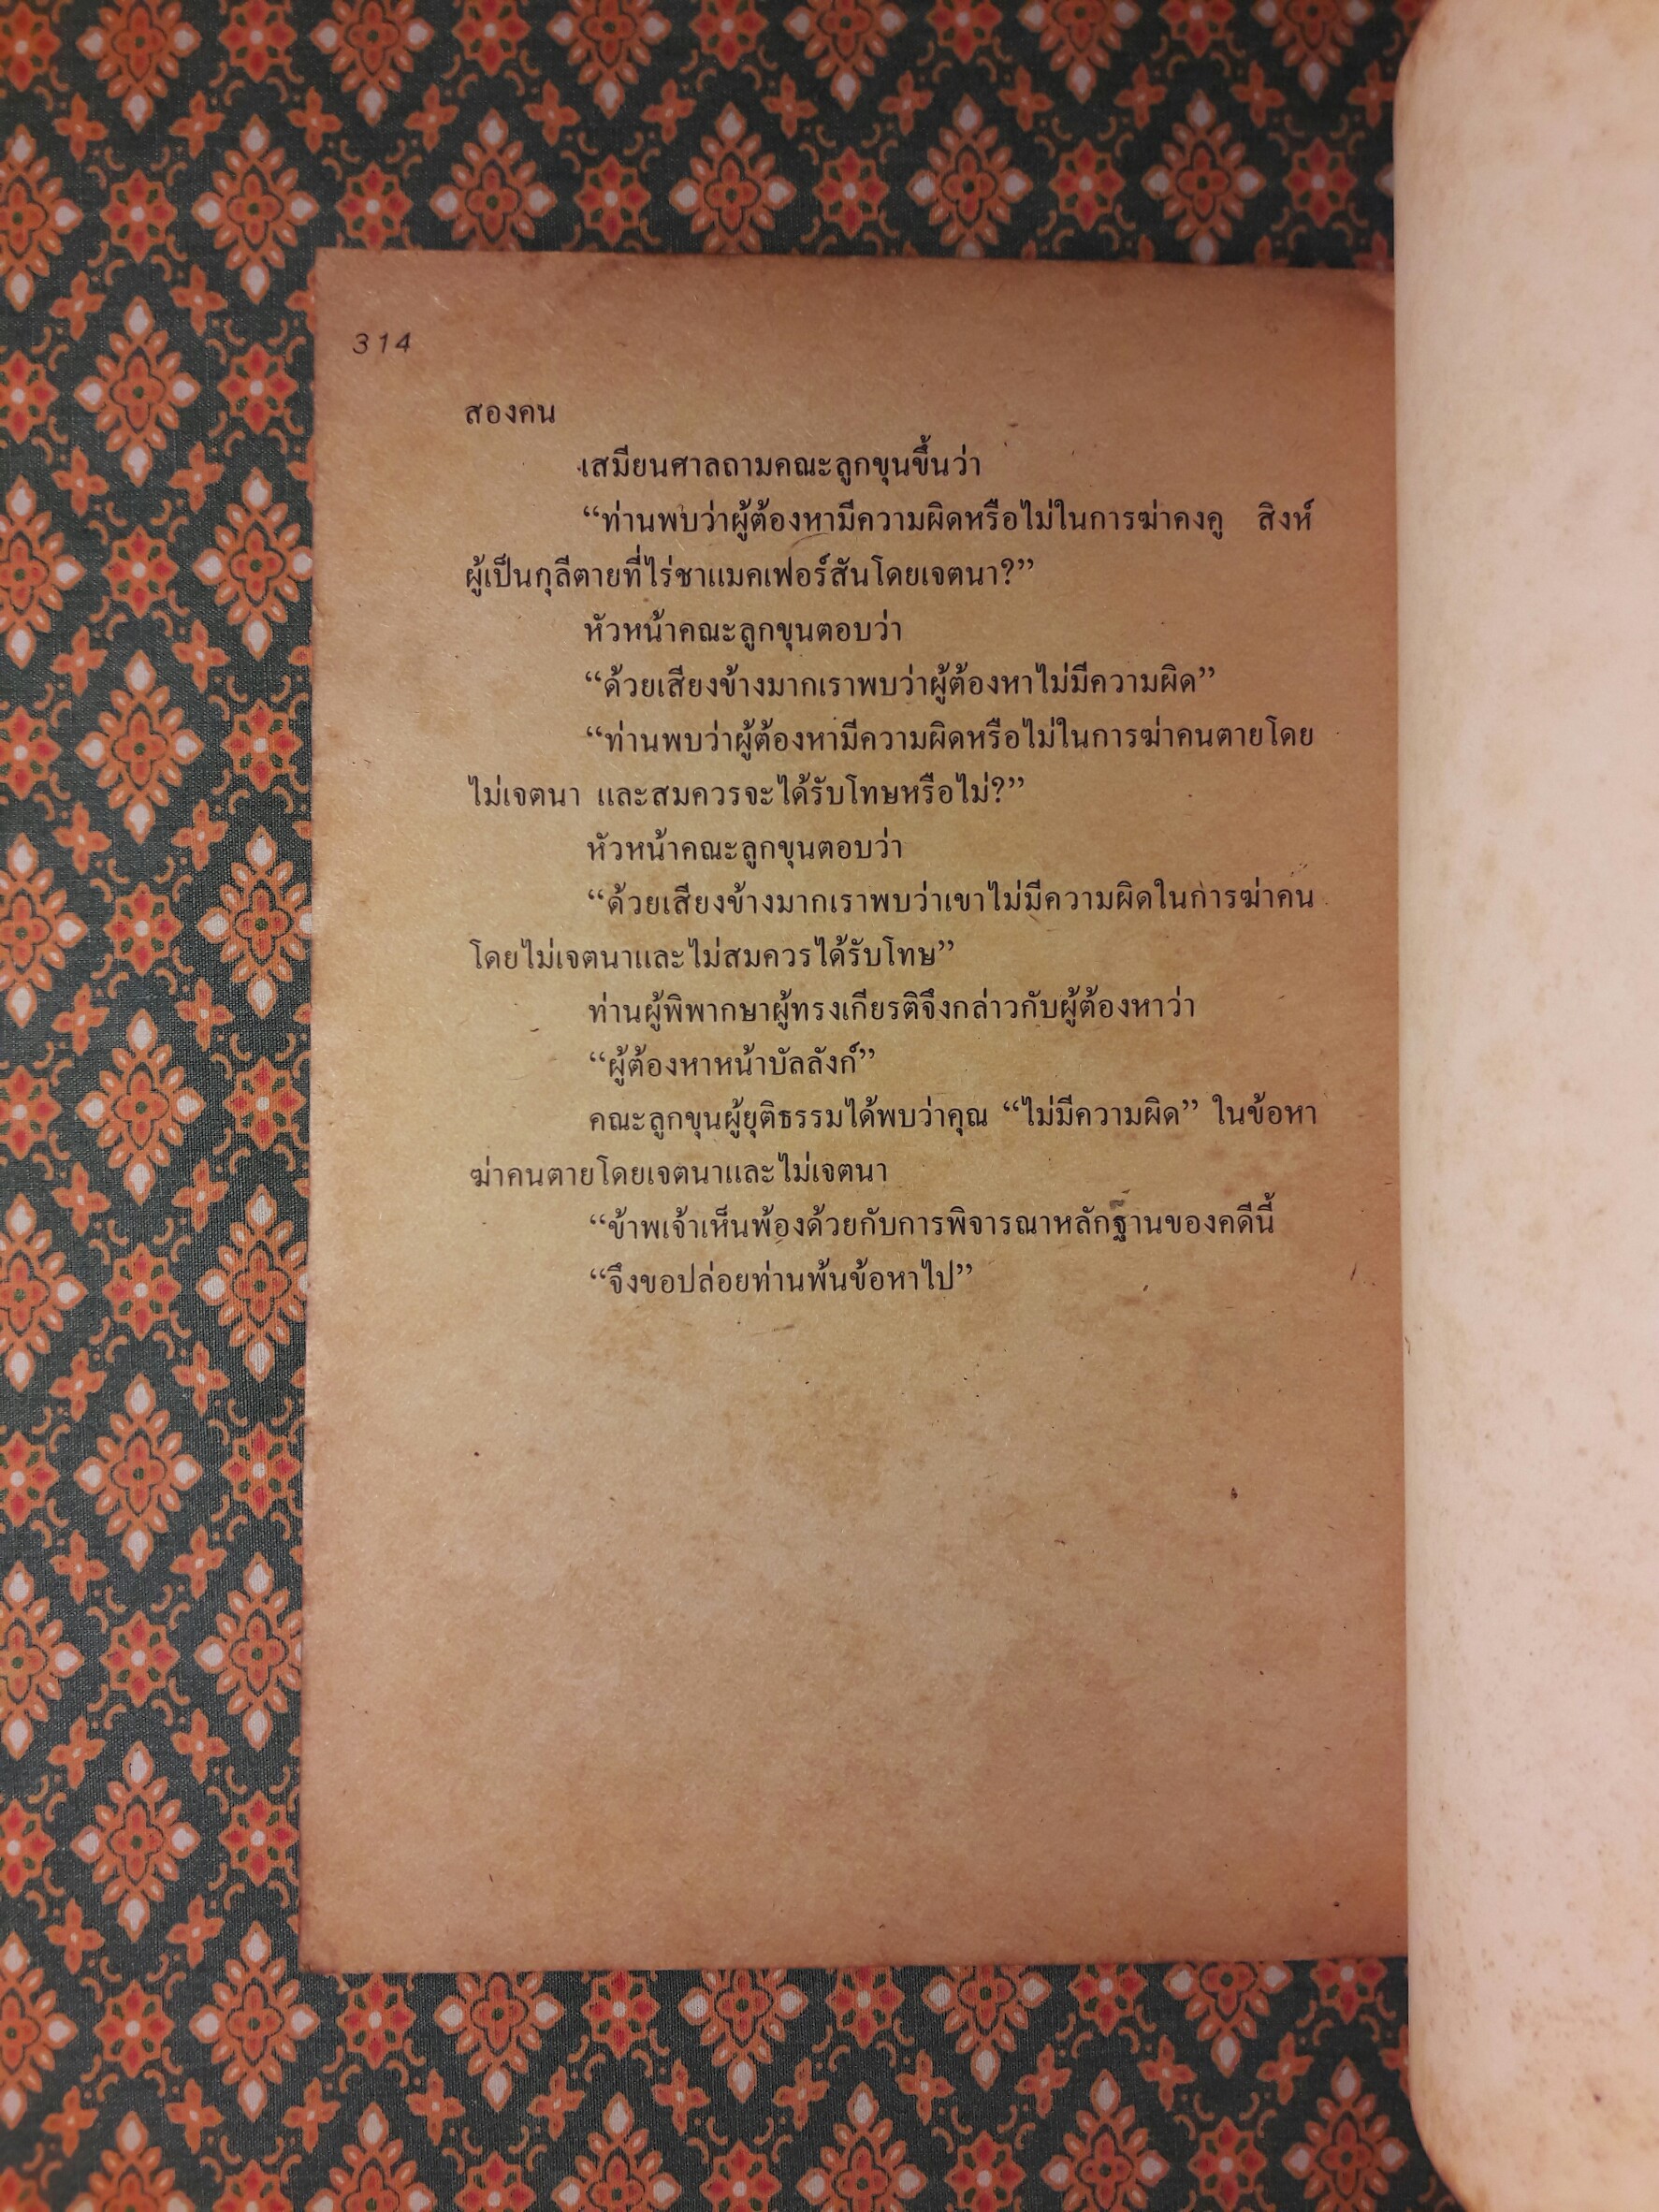 314
สองคน
เสมียนศาลถามคณะลูกขุนขึ้นว่า
“ท่านพบว่าผู้ต้องหามีความผิดหรือไม่ในการฆ่าคงคู สิงห์
ผู้เป็นกุลีตายที่ไร่ชาแมคเฟอร์สันโดยเจตนา?”
หัวหน้าคณะลูกขุนตอบว่า
“ด้วยเสียงข้างมากเราพบว่าผู้ต้องหาไม่มีความผิด”
“ท่านพบว่าผู้ต้องหามีความผิดหรือไม่ในการฆ่าคนตายโดย
ไม่เจตนา และสมควรจะได้รับโทษหรือไม่?”
หัวหน้าคณะลูกขุนตอบว่า
“ด้วยเสียงข้างมากเราพบว่าเขาไม่มีความผิดในการฆ่าคน
โดยไม่เจตนาและไม่สมควรได้รับโทษ”
ท่านผู้พิพากษาผู้ทรงเกียรติจึงกล่าวกับผู้ต้องหาว่า
“ผู้ต้องหาหน้าบัลลังก์”
คณะลูกขุนผู้ยุติธรรมได้พบว่าคุณ “ไม่มีความผิด” ในข้อหา
ฆ่าคนตายโดยเจตนาและไม่เจตนา
“ข้าพเจ้าเห็นพ้องด้วยกับการพิจารณาหลักฐานของคดีนี้
“จึงขอปล่อยท่านพ้นข้อหาไป”